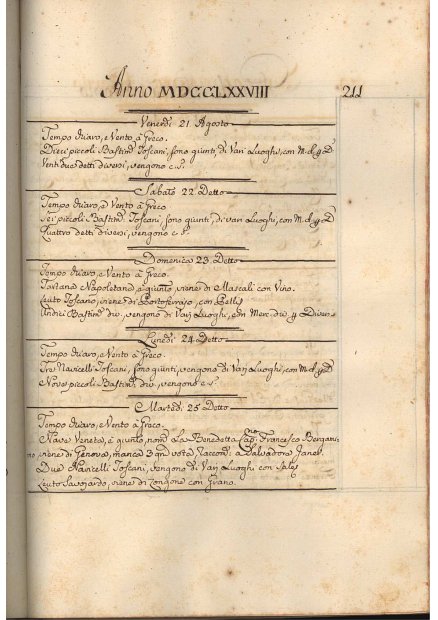 Anno MDCCLXXVIII 211
Venerdì 21 Agosto
Tempo chiaro, e Vento à Greco.
Dieci piccoli Bastim.ti Toscani, sono giunti, di Varj Luoghi, con M. d. p D
Venti due detti diversi, vengono c S.
Sabato 22 Detto
Tempo chiaro, e Vento à Greco
Sei piccoli Bastim.ti Toscani, sono giunti, di varj Luoghi, con M. d. p D
Quattro detti diversi, vengono c S.
Domenica 23 Detto
Tempo chiaro, e Vento à Greco.
Tartana Napoletana, è giunta, viene di Mascali con Vino.
Leuto Toscano, viene di Portoferrajo, con Pelli
Undici Bastim.ti div. vengono di Varj Luoghi, con Merc. div. p Diversi
Lunedì 24 Detto
Tempo chiaro, e Vento à Greco.
Tre Navicelli Toscani, sono giunti, vengono di Varj Luoghi, con M. d. p D
Nove piccoli Bastim.ti div. vengono c S.
Martedì 25 Detto
Tempo chiaro, e Vento à Greco.
Nave Veneta, è giunta, nom.ta La Benedetta Cap.no Francesco
viene di Genova, manca vota Raccom. a Salvadore
Due Navicelli Toscani, vengono di Varj Luoghi con Sale
Leuto Savojardo, viene di con Grano.